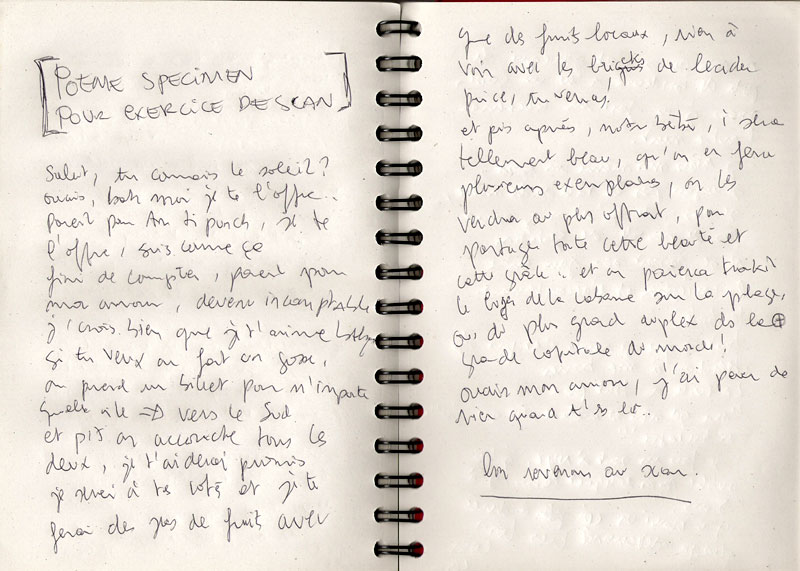 [POEME SPECIMEN
POUR EXERCICE DE SCAN]
Salut, tu connais le soleil ?
ouais, bah moi je te l'offre..
Pareil pour ton ti punch, je te
l'offre, suis comme ça
fini de compter, pareil pour
mon amour, devenu incomptable
j'crois bien que j't'aime
si tu veux on fait un gosse,
on prend un billet pour n'importe
quelle île => vers le Sud
et pis on accouche tous les
deux, je t'aiderai promis
je serai à tes côtés et j'te
ferai des jus de fruits avec
que des fruits locaux, rien à
voir avec les briquettes de leader
price, tu verras!
et pis après, notre bébé, i sera
tellement beau, qu'on en fera
plusieurs exemplaires, on les
vendra au plus offrant, pour
partager toute cette beauté et
cette grâce.. et on paiera
le loyer de la cabane sur la plage,
ou du plus grand duplex ds la +
grande capitale du monde!
ouais mon amour, j'ai peur de
rien quand t'es là..
revenons au scan.